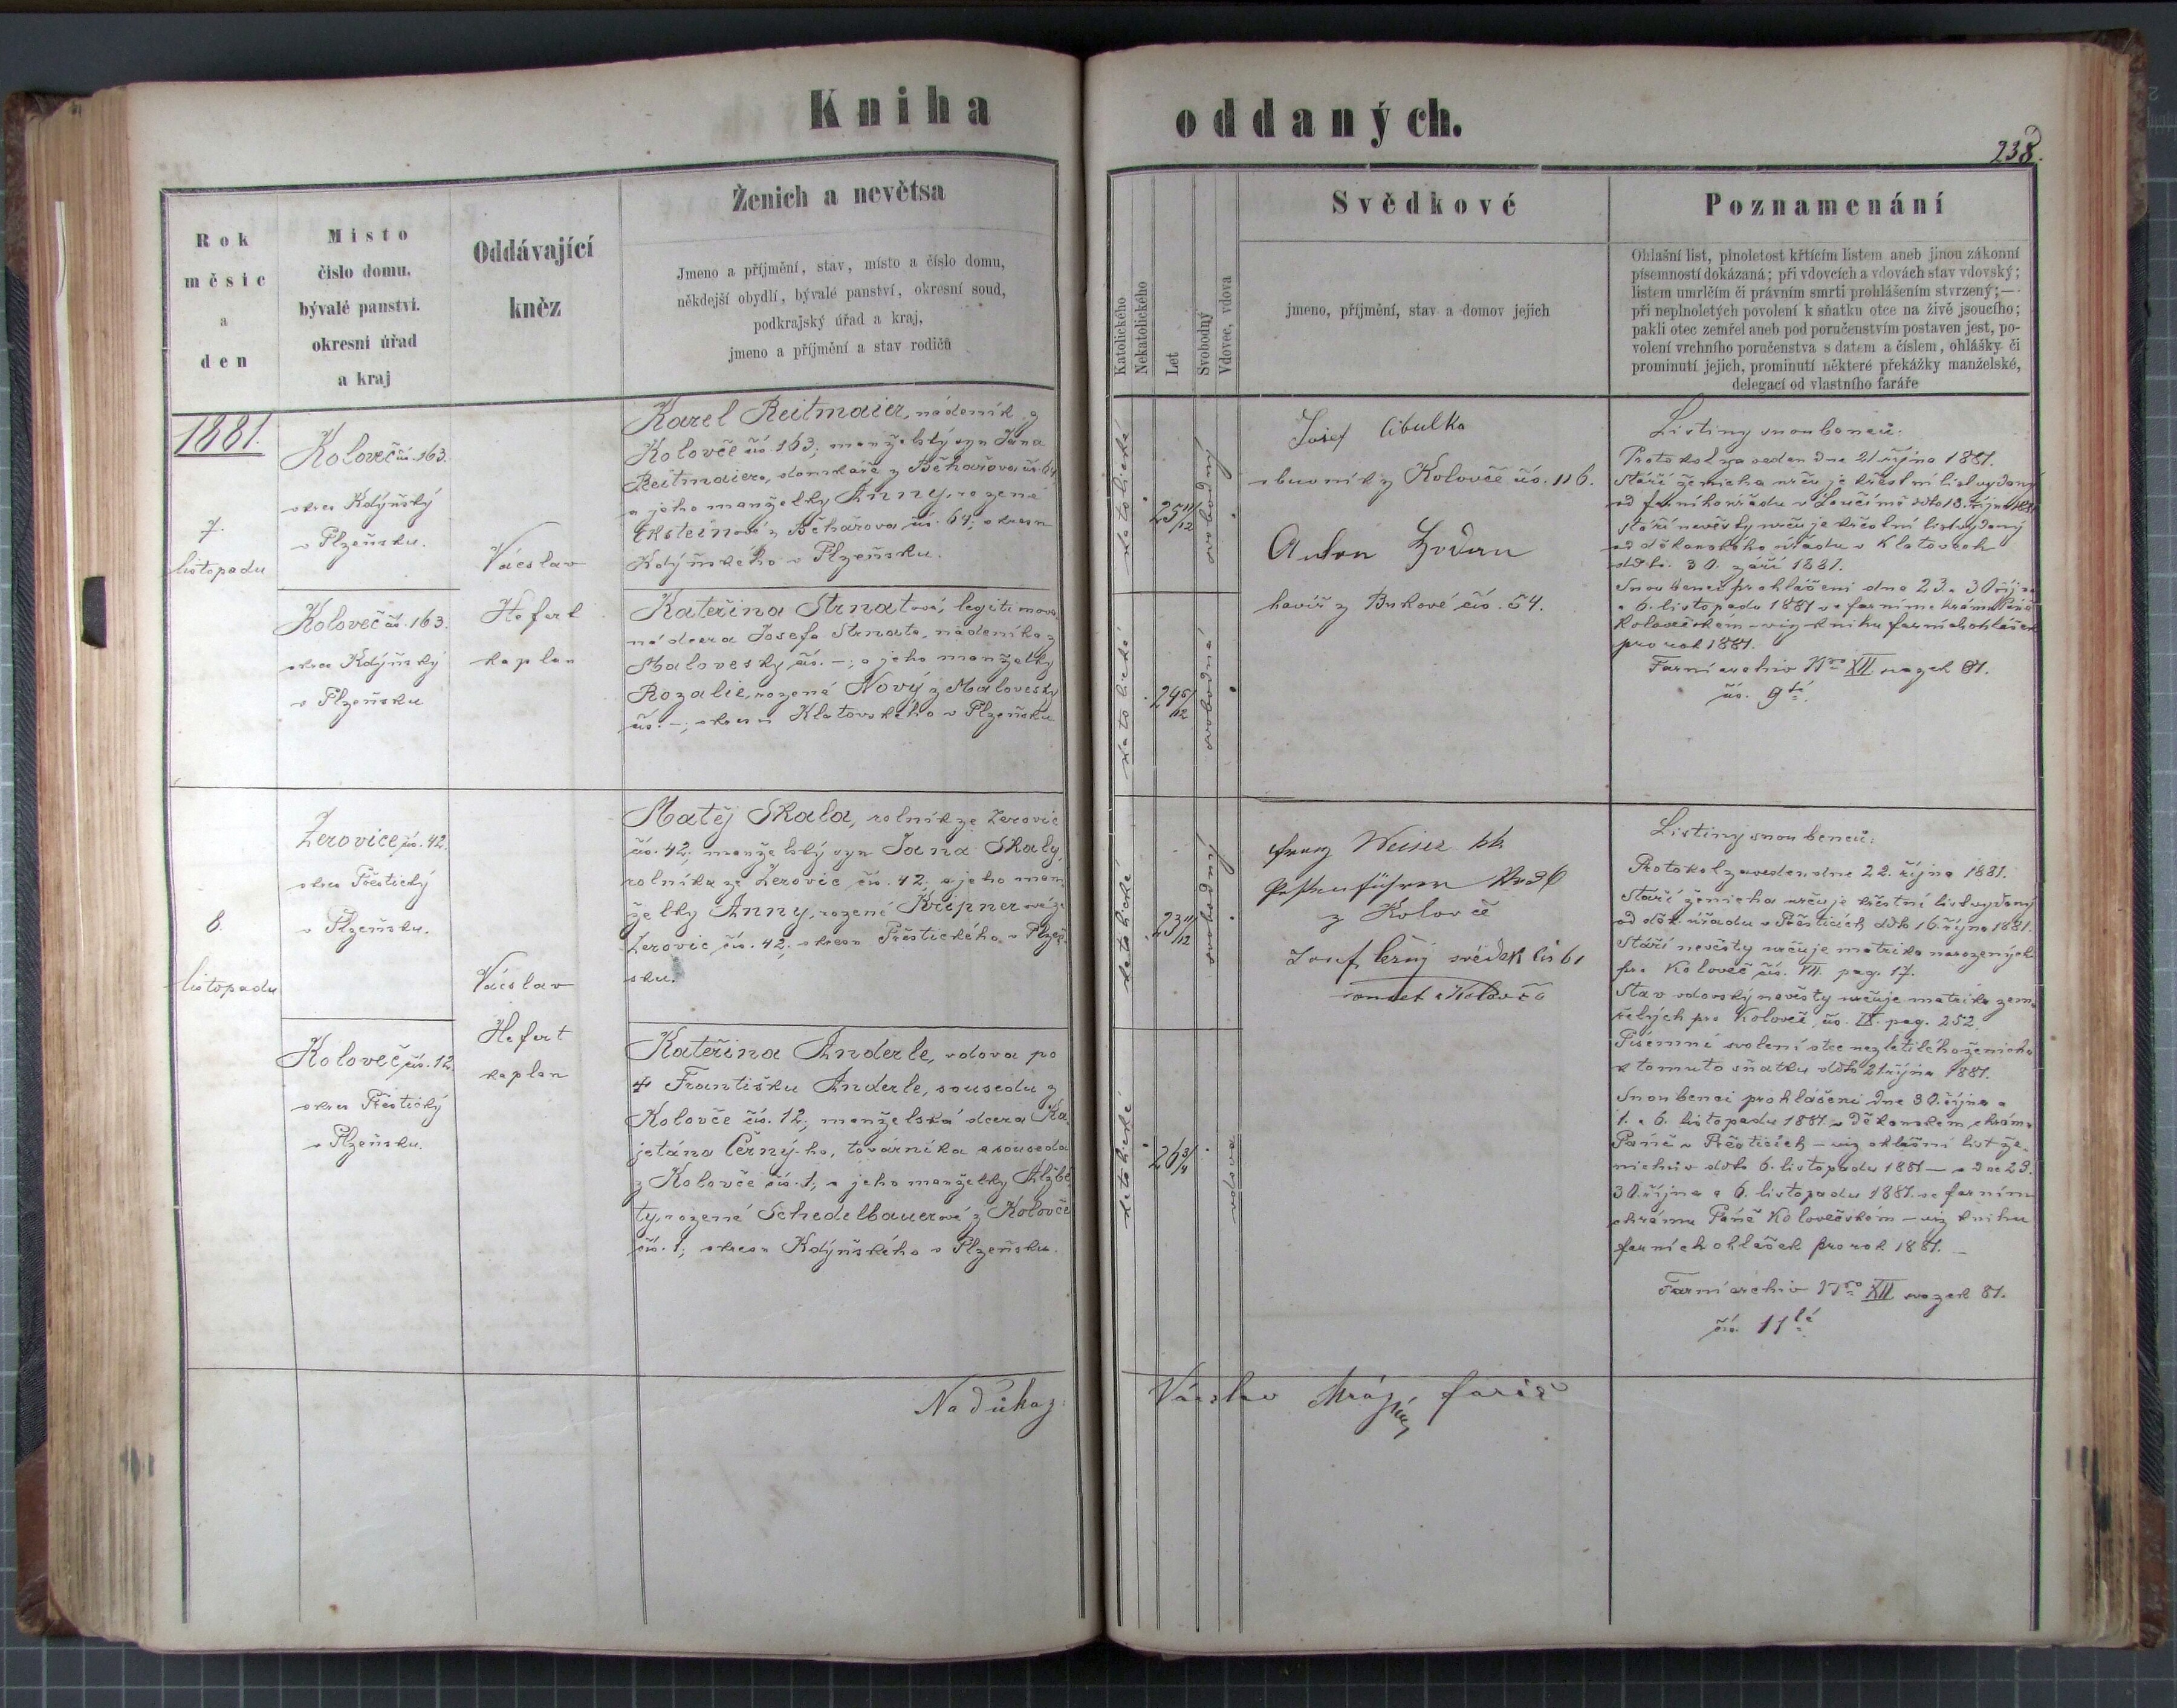 Kniha
oddaných.
238.
Rok
měsíc
a
den
Místo
číslo domu,
bývalé panství.
okresní úřad
a kraj
Oddávající
kněz
Ženich a nevětsa
Jmeno a příjmění, stav, místo a číslo domu,
někdejší obydlí, bývalé panství, okresní soud,
podkrajský úřad a kraj,
jmeno a příjmění a stav rodičů
Katolického
Nekatolického
Let
Svobodný
Vdovec, vdova
Svědkové
jmeno, příjmění, stav a domov jejich
Poznamenání
Ohlašní list, plnoletost křtícím listem aneb jinou zákonní
písemností dokázaná; při vdovcích a vdovách stav vdovský;
listem umrlčím či právním smrti prohlášením stvrzený;—
při neplnoletých povolení k sňatku otce na živě jsoucího;
pakli otec zemřel aneb pod poručenstvím postaven jest, po-
volení vrchního poručenstva s datem a číslem, ohlášky či
prominutí jejich, prominutí některé překážky manželské,
delegací od vlastního faráře
1881.
7.
listopadu
Koloveč čís. 163.
okres Kdýňský
v Plzeňsku.
Koloveč čís. 163.
okres Kdýňský
v Plzeňsku
Váceslav
Hefert
kaplan
Karel Reitmaier, nádeník z
Kolovče čís. 163; manželský syn Jana
Reitmaiera, domkáře z Běhařova čís. 64
a jeho manželky Anny, rozené
Eksteinové z Běhařova čís. 64; okresu
Kdýňského v Plzeňsku.
Kateřina Strnatová, legitimova-
ná dcera Josefa Strnata, nádeníka z
Malovesky čís. –; a jeho manželky
Rozalie, rozené Nový z Malovesky
čís. –; okresu Klatovského v Plzeňsku
katolické
25 11/12
svobodný
katolické
24 5/12
svobodná
Josef Cibulka
obuvník z Kolovče čís. 116.
Anton
havíř z Bukové čís. 54.
Listiny snoubenců:
Protokol zaveden dne 21 října 1881.
Stáří ženicha určuje křestní list vydaný
od farního úřadu v Loučimě ddto 13. října 1881
Stáří nevěsty určuje křestní list vydaný
od děkanského úřadu v Klatovech
ddto. 30. září 1881.
Snoubenci prohlášeni dne 23. a 30 října
a 6. listopadu 1881 ve farním chrámu Páně
Kolovečském – viz knihu farních ohlášek
pro rok 1881.
Farní archiv Nro XII svazek 81.
čís. 9té
8.
listopadu
Žerovice čís. 42.
okres Přeštický
v Plzeňsku.
Koloveč čís. 12.
okres Přeštický
v Plzeňsku.
Váceslav
Hefert
kaplan
Matěj Skala, rolník ze Žerovic
čís. 42; manželský syn Jana Skaly,
rolníka ze Žerovic čís. 42. a jeho man-
želky Anny, rozené Křipnerové ze
Žerovic čís. 42; okresu Přeštického v Plzeň-
sku.
Kateřina Anderle, vdova po
† Františku Anderle, sousedu z
Kolovče čís. 12; manželská dcera Ka-
jetána Černý-ho, továrníka a souseda
z Kolovče čís. 1; a jeho manželky Alžbě-
ty, rozené Schedelbauerové z Kolovče
čís. 1; okresu Kdýňského v Plzeňsku.
katolické
23 11/12
svobodný
katolické
26 3/4
vdova
Franz Weiser kk
Postenführer Nro 6
z Kolovče
Josef Černý svědek čís 61
soused z Kolovče
Listiny snoubenců:
Protokol zaveden dne 22. října 1881.
Stáří ženicha určuje křestní list vydaný
od děk. úřadu v Přešticích ddto 16. října 1881.
Stáří nevěsty určuje matrika narozených
pro Koloveč čís. VII. pag. 17.
Stav vdovský nevěsty určuje matrika zem-
řelých pro Koloveč, čís. IX. pag. 252.
Písemné svolení otce nezletilého ženicha
k tomuto sňatku ddto 21 října 1881.
Snoubenci prohlášeni dne 30. října a
1. a 6. listopadu 1881 v děkanském chrámu
Páně v Přešticích – viz ohlašní list že-
nichův ddto 6. listopadu 1881 – a dne 23.
30. října a 6. listopadu 1881. ve farním
chrámu Páně Kolovečském – viz knihu
farních ohlášek pro rok 1881. –
Farní archiv Nro XII svazek 81.
čís. 11té
Na důkaz:
Váceslav farář